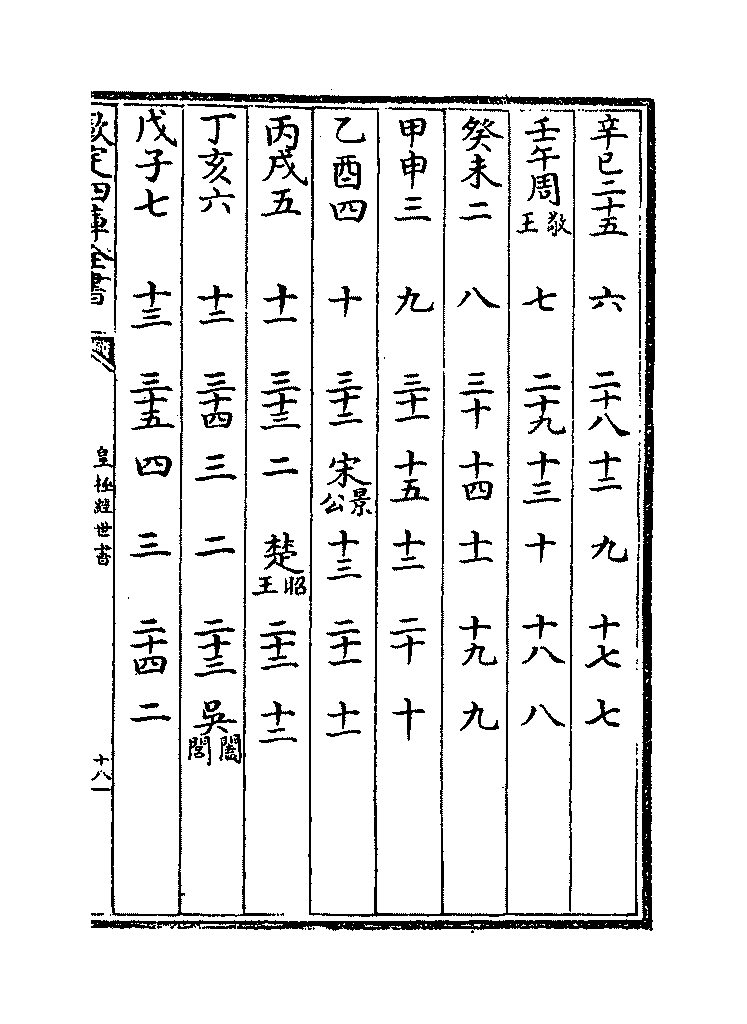 辛巳二十五 六 二十八 十二 九 十七 七
壬午周敬王 七 二十九 十三 十 十八 八
癸未二 八 三十 十四 十一 十九 九
甲申三 九 三十一 十五 十二 二十 十
乙酉四 十 三十二 宋景公 十三 二十一 十一
丙戌五 十一 三十三 二 楚昭王 二十二 十二
丁亥六 十二 三十四 三 二 二十三 吳闔閭
戊子七 十三 三十五 四 三 二十四 二
欽定四庫全書 皇極經世書 十八